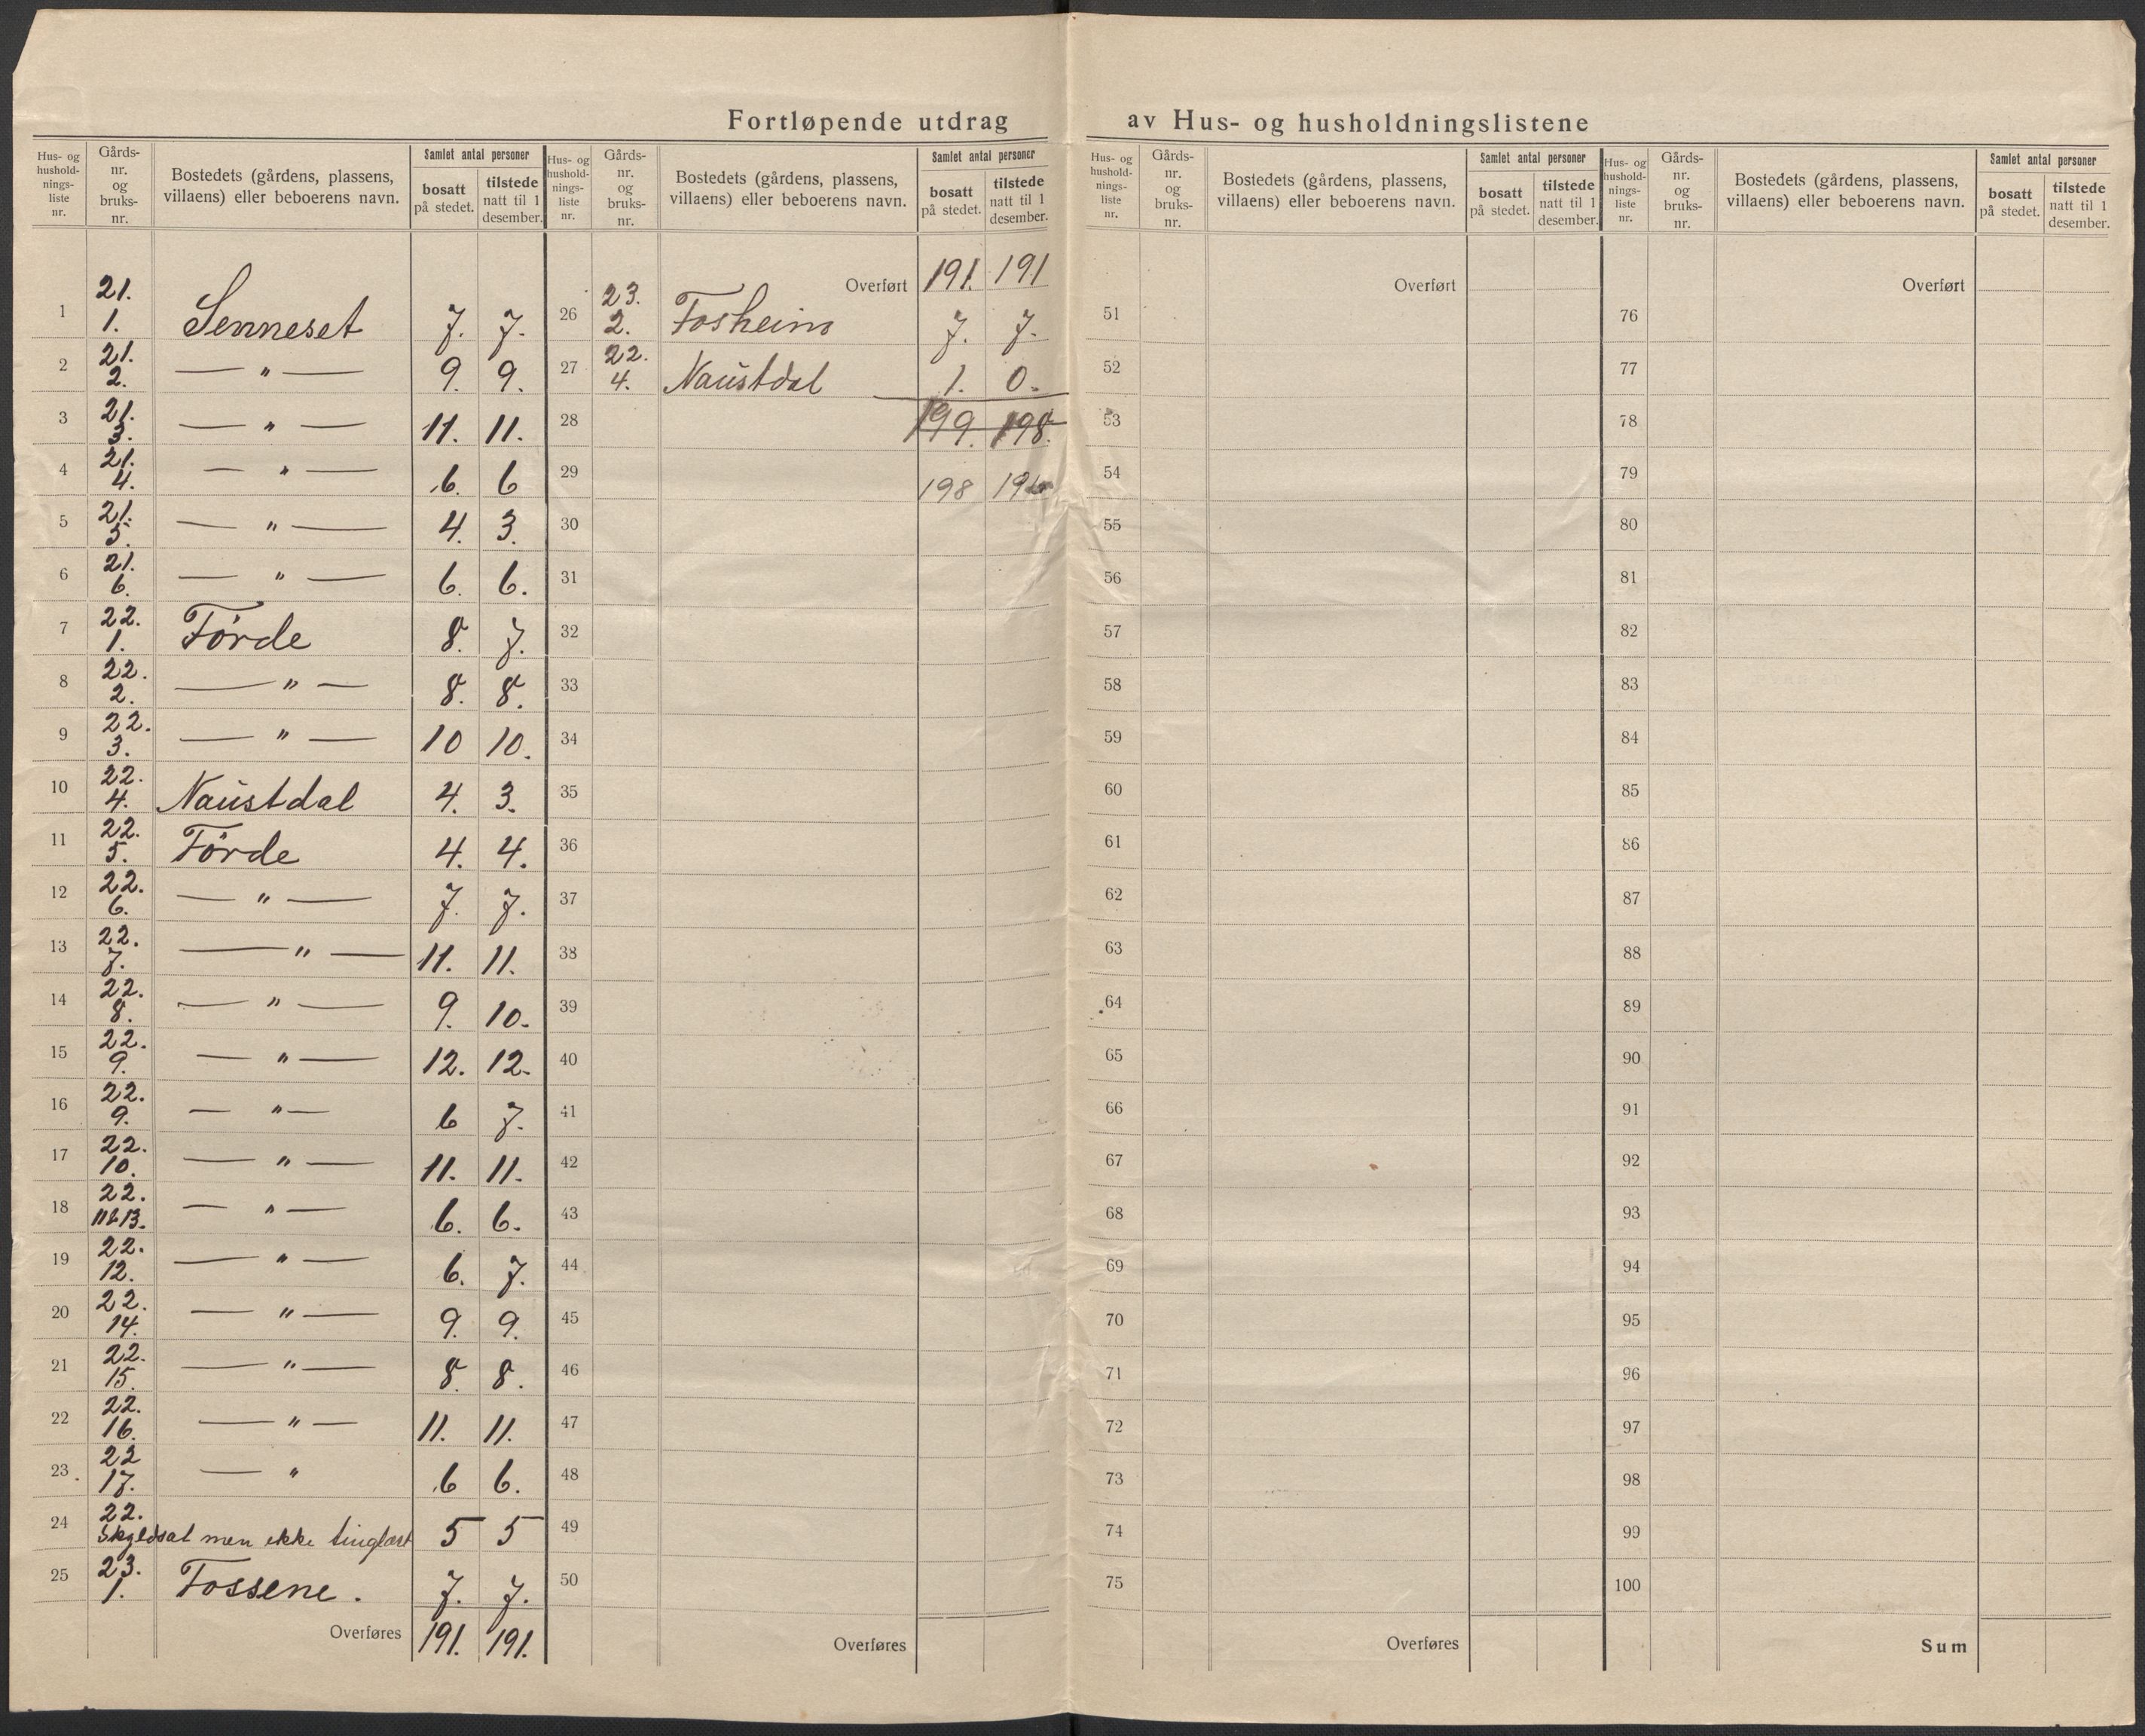 Fortløpende utdrag av Hus- og husholdningslistene
Hus- og hushold-nings-liste nr. Gårds-nr. og bruks-nr. Bostedets (gårdens, plassens, villaens) eller beboerens navn. Samlet antal personer bosatt på stedet. tilstede natt til 1 desember.
1 21. 1. Senneset 7. 7.
2 21. 2. — " — 9. 9.
3 21. 3. — " — 11. 11.
4 21. 4. — " — 6. 6
5 21. 5. — " — 4. 3.
6 21. 6. — " — 6. 6.
7 22. 1. Förde 8. 7.
8 22. 2. — " — 8. 8.
9 22. 3. — " — 10 10.
10 22. 4. Naustdal 4. 3.
11 22. 5. Förde 4. 4.
12 22. 6. — " — 7. 7.
13 22. 7. — " — 11. 11.
14 22. 8. — " — 9. 10.
15 22. 9. — " — 12. 12.
16 22. 9. — " — 6 7.
17 22. 10. — " — 11. 11.
18 22. 11&13. — " — 6. 6.
19 22. 12. — " — 6. 7.
20 22. 14. — " — 9. 9.
21 22. 15. — " — 8. 8.
22 22. 16. — " — 11. 11.
23 22 17. — " 6 6.
24 22. Skyldsat men ikke tinglæst 5 5
25 23. 1. Fossene. 7. 7.
Overføres 191. 191.
Hus- og hushold-nings-liste nr. Gårds-nr. og bruks-nr. Bostedets (gårdens, plassens, villaens) eller beboerens navn. Samlet antal personer bosatt på stedet. tilstede natt til 1 desember.
Overført 191. 191
26 23. 2. Fosheim 7. 7.
27 22. 4. Naustdal 1. 0.
28 199. 198.
29 198
30
31
32
33
34
35
36
37
38
39
40
41
42
43
44
45
46
47
48
49
50
Overføres
Hus- og hushold-nings-liste nr. Gårds-nr. og bruks-nr. Bostedets (gårdens, plassens, villaens) eller beboerens navn. Samlet antal personer bosatt på stedet. tilstede natt til 1 desember.
Overført
51
52
53
54
55
56
57
58
59
60
61
62
63
64
65
66
67
68
69
70
71
72
73
74
75
Overføres
Hus- og hushold-nings-liste nr. Gårds-nr. og bruks-nr. Bostedets (gårdens, plassens, villaens) eller beboerens navn. Samlet antal personer bosatt på stedet. tilstede natt til 1 desember.
Overført
76
77
78
79
80
81
82
83
84
85
86
87
88
89
90
91
92
93
94
95
96
97
98
99
100
Sum